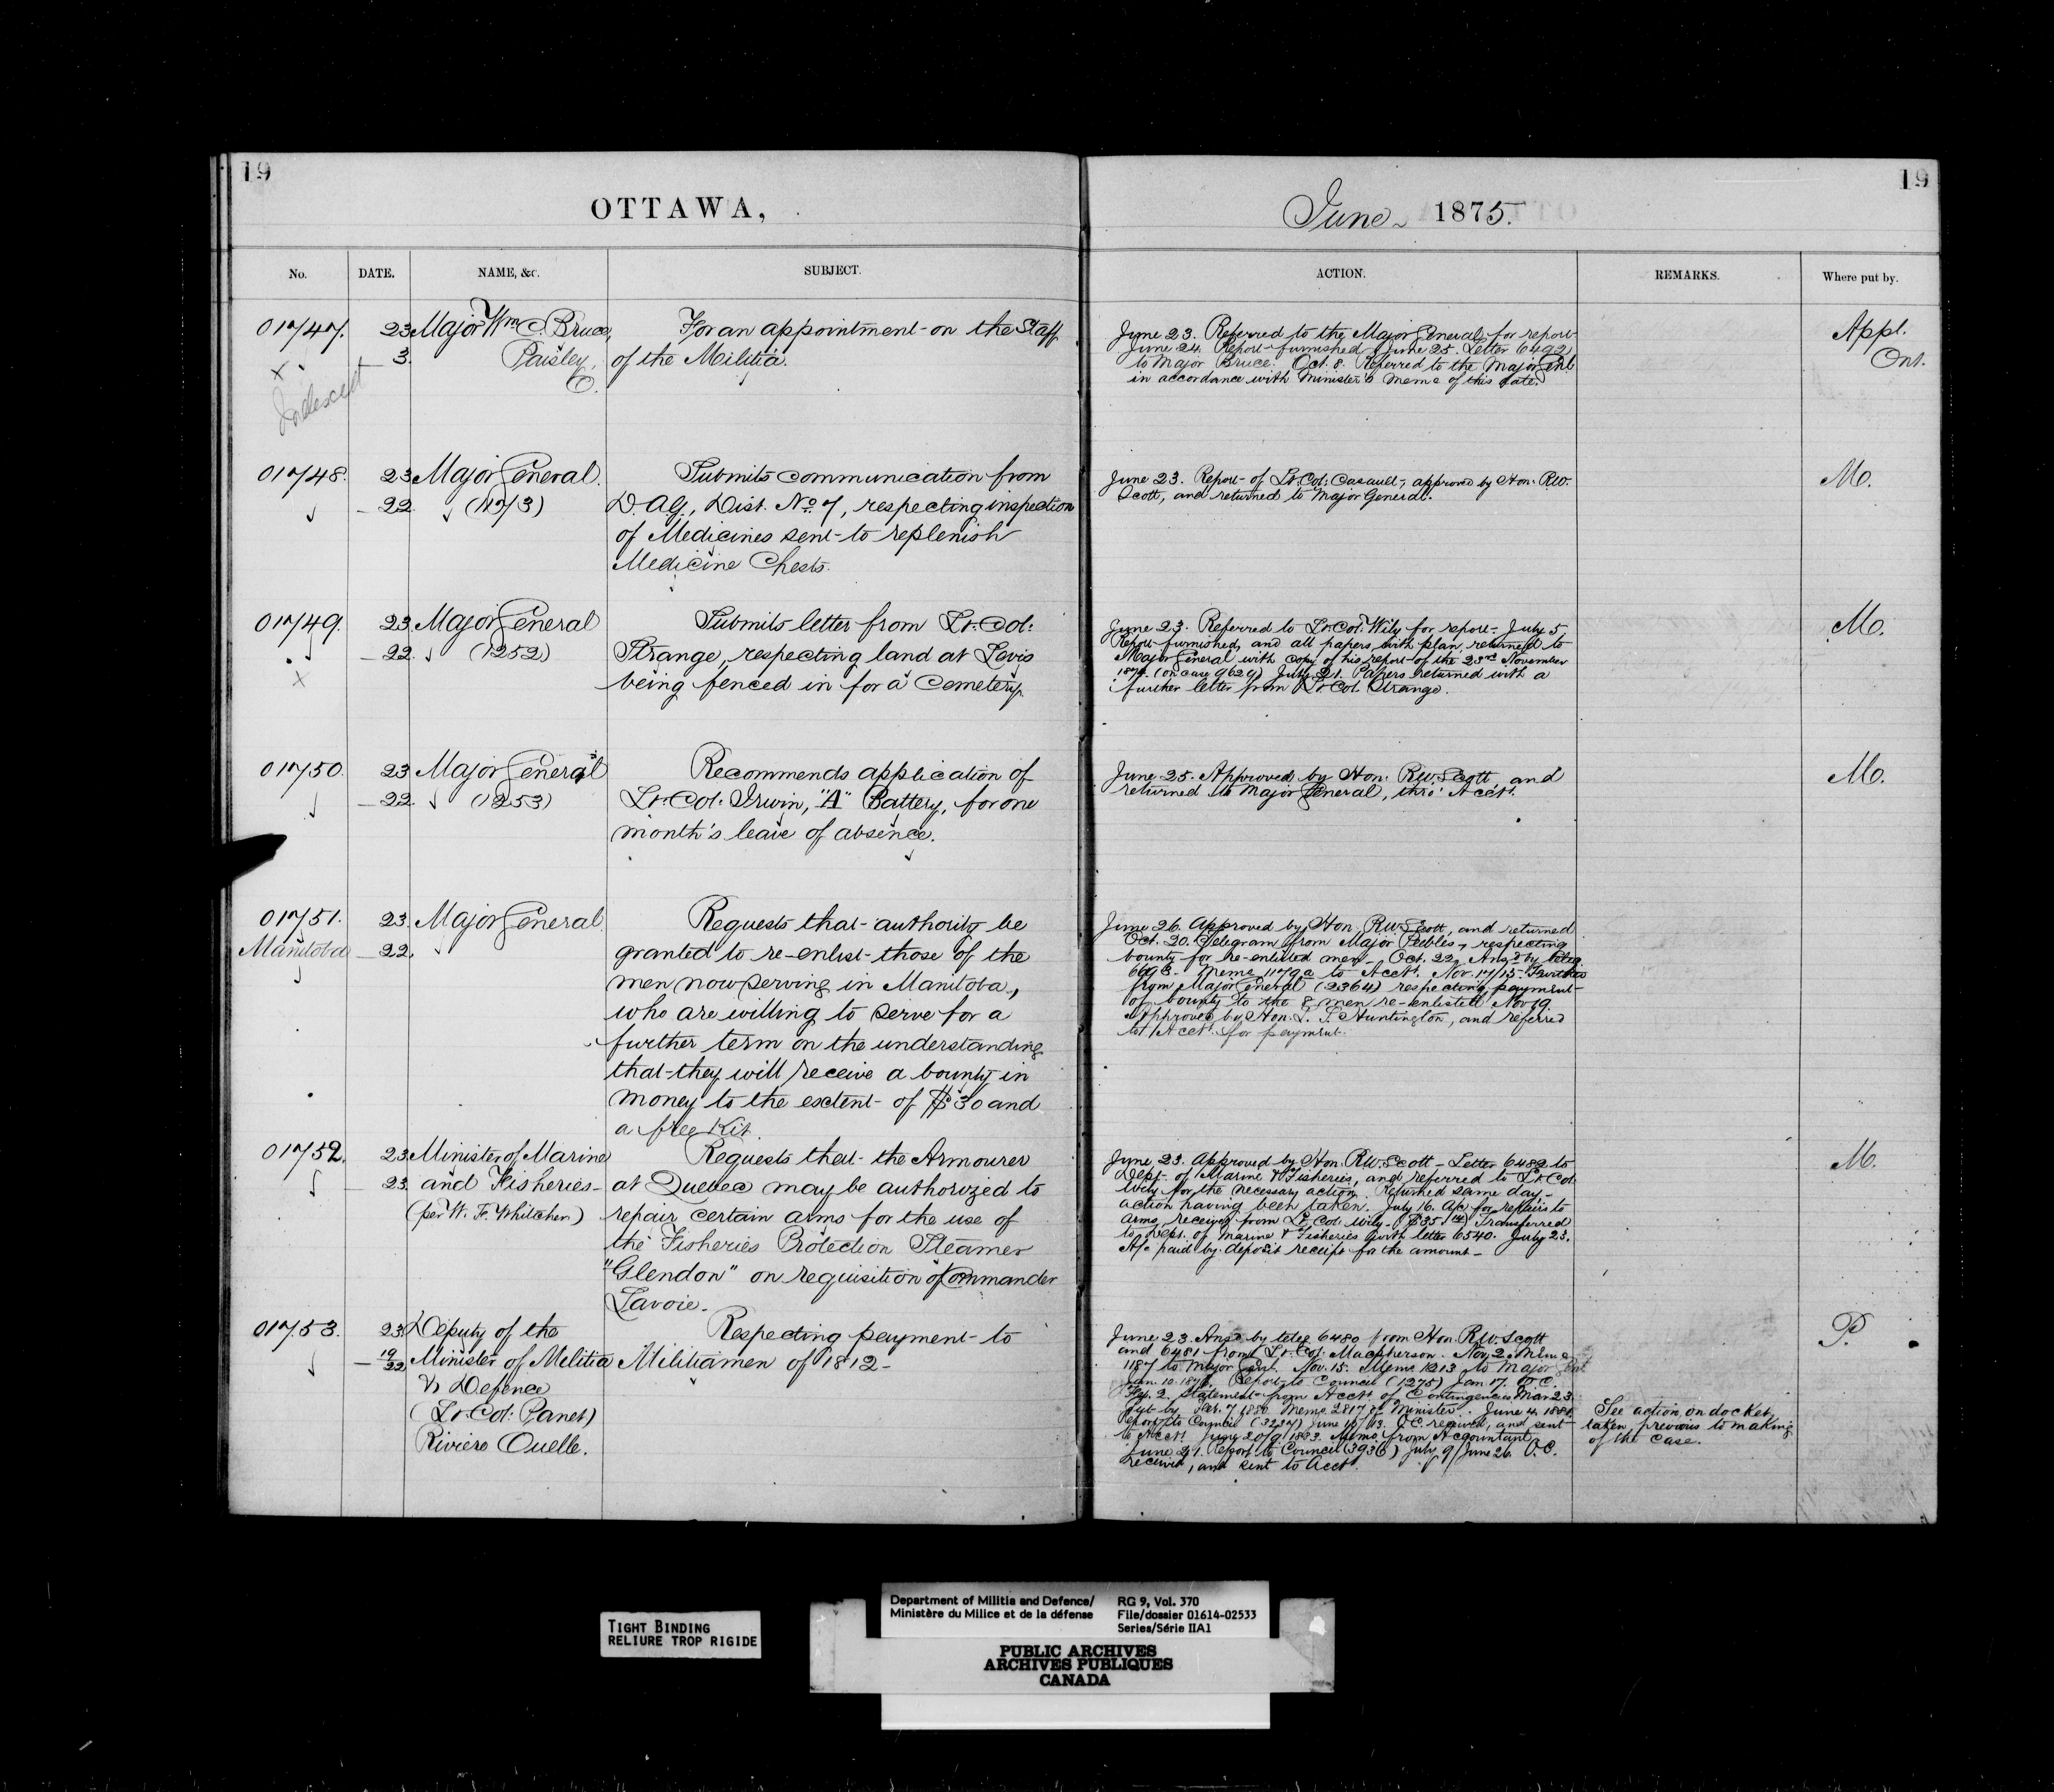 19
OTTAWA,
No.
DATE.
NAME, &c.
SUBJECT.
01747.
23
Major Wm. C. Bruce,
For an appointment on the Staff
3.
Paisley,
of the Militia.
O.
Indexed
01748.
23
Major General.
Submits communication from
22
(1273)
D.A.G., Dist. No. 7, respecting inspection
of Medicines sent to replenish
Medicine Chests.
01749.
23
Major General
Submits letter from Lt. Col:
22.
(1252)
Strange, respecting land at Levis
being fenced in for a Cemetery.
01750.
23
Major General
Recommends application of
22.
(1253)
Lt. Col: Irwin, "A" Battery, for one
month's leave of absence.
01751.
23.
Major General
Requests that authority be
Manitoba
22.
granted to re-enlist those of the
men now serving in Manitoba,
who are willing to serve for a
further term on the understanding
that they will receive a bounty in
money to the extent of $30 and
a free Kit.
01752.
23
Minister of Marine
Requests that the Armourer
23.
and Fisheries
at Quebec may be authorized to
(per W. F. Whitcher)
repair certain arms for the use of
the Fisheries Protection Steamer
"Glendon" on requisition of Commander
Lavoie.
01753.
23
Deputy of the
Respecting payment to
19/22
Minister of Militia
Militiamen of 1812
& Defence
(Lt. Col: Panet)
Riviere Ouelle.
19
June 1875.
ACTION.
REMARKS.
Where put by.
June 23. Referred to the Major General for report
June 24. Report furnished June 25. Letter 6492
to Major Bruce. Oct. 8. Referred to the Major Genl
in accordance with Minister's memo of this date.
Appl.
Ont.
June 23. Report of Lt. Col: Casault, approved by Hon. R.W.
Scott, and returned to Major General.
M.
June 23. Referred to Lt. Col: Wily for report. July 5
Report furnished, and all papers with plan, returned to
Major General with copy of his report of the 23rd November
1874. (on case 9629) July 21. Papers returned with a
further letter from Lt. Col. Strange.
M.
June 25. Approved by Hon. R.W. Scott and
returned to Major General, thro' Acct.
M.
June 26. Approved by Hon. R.W. Scott, and returned
Oct. 20. Telegram from Major Peebles, respecting
bounty for re-enlisted men. Oct. 22. Ansd by teleg.
6698. Memo 1179a to Acct. Nov. 17/15. Further
from Major General (2364) respecting payment
of bounty to the 8 men re-enlisted Nov 19.
Approved by Hon. L. S. Huntington, and referred
to Acct. for payment.
June 23. Approved by Hon. R.W. Scott - Letter 6482 to
Dept. of Marine & Fisheries, and referred to Lt. Col.
Wily for the necessary action. Returned same day,
action having been taken. July 16. A/c for repairs to
arms received from Lt. Col. Wily. Transferred
to Dept. of Marine & Fisheries with letter 6540. July 23.
A/c paid by deposit receipt for the amount.
M.
June 23. Ansd by teleg. 6480 from Hon. R.W. Scott
and 6481 from Lt. Col. Macpherson. Nov. 2. Memo
1187 to Major Genl. Nov. 15. Memo 1213 to Major Genl
Jan. 10. 1876. Report to Council (1275) Jan 17. O.C.
Statement from Acct. of Contingencies Mar 23.
Put by Feb. 7 1880. Memo 2817 to Minister. June 4. 1880
Report to Council O.C. received, and sent
to Acct. Memo from Accountant
June 21. Report to Council (3936) July 9/June 26. O.C.
received, and sent to Acct.
See action on docket
taken previous to making
of the case.
P.
TIGHT BINDING
RELIURE TROP RIGIDE
Department of Militia and Defence/
Ministère du Milice et de la défense
RG 9, Vol. 370
File/dossier 01614-02533
Series/Série IIA1
PUBLIC ARCHIVES
ARCHIVES PUBLIQUES
CANADA